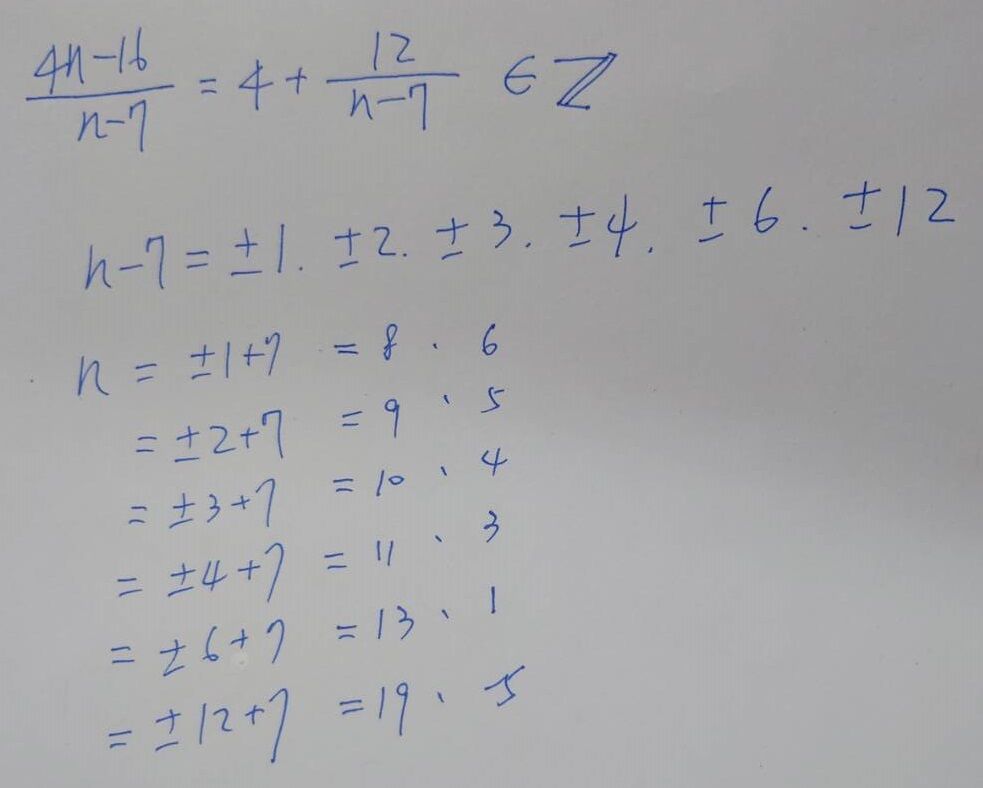 (4n-16)/(n-7) = 4 + 12/(n-7) ∈ ℤ
n-7 = ±1. ±2. ±3. ±4. ±6. ±12
n = ±1+7 = 8 . 6
= ±2+7 = 9 、 5
= ±3+7 = 10 、 4
= ±4+7 = 11 、 3
= ±6+7 = 13 、 1
= ±12+7 = 19 、 5